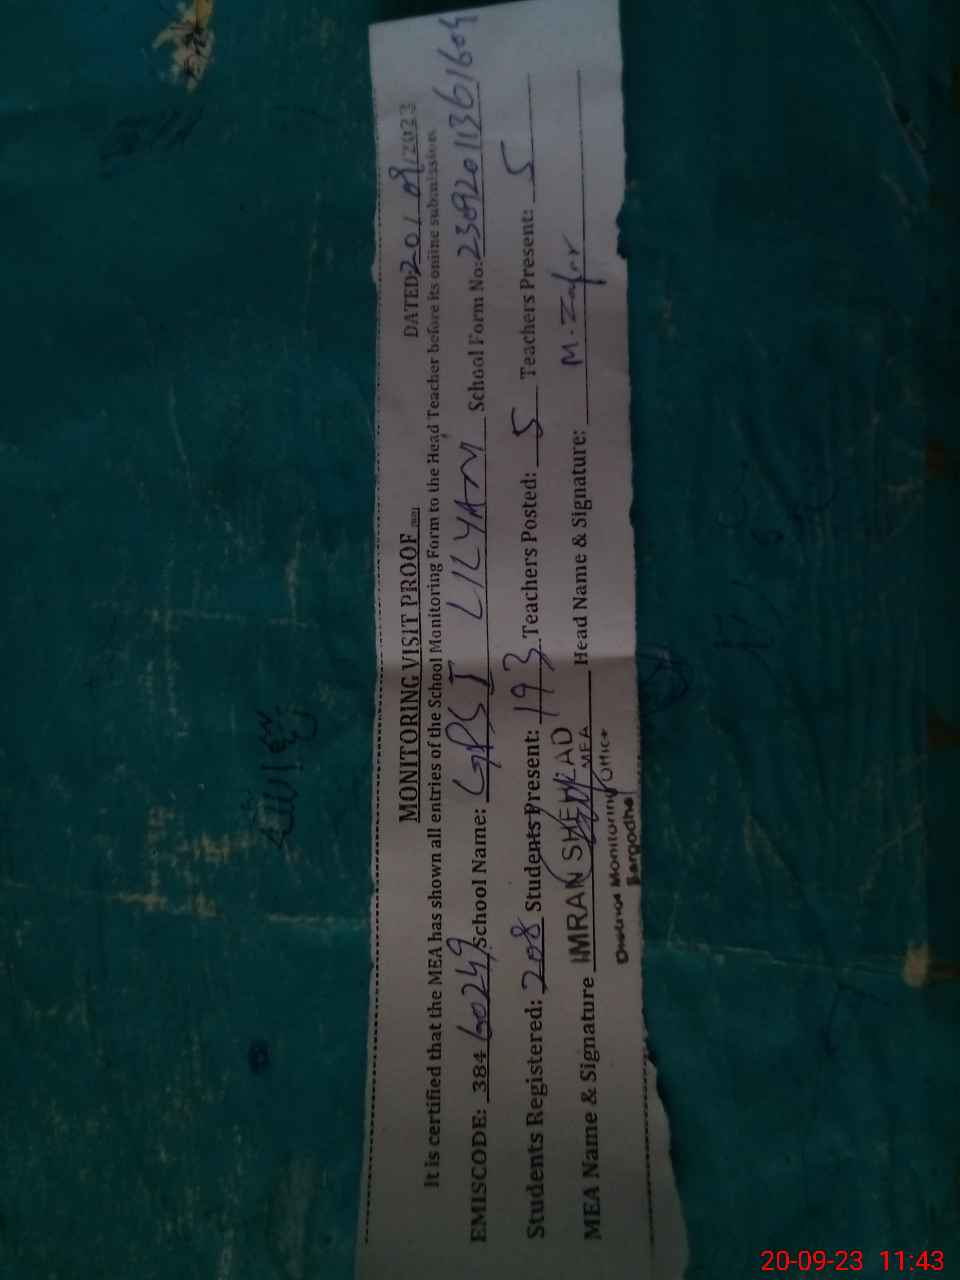 MONITORING VISIT PROOF
DATED 20/09/2023
It is certified that the MEA has shown all entries of the School Monitoring Form to the Head Teacher before its online submission.
EMISCODE: 38460249 School Name: GPS I LILYANI School Form No: 23092011361604
Students Registered: 208 Students Present: 193 Teachers Posted: 5 Teachers Present: 5
MEA Name & Signature IMRAN SHEHZAD Head Name & Signature: M. Zafar
MEA
District Monitoring Officer
Sargodha
20-09-23 11:43